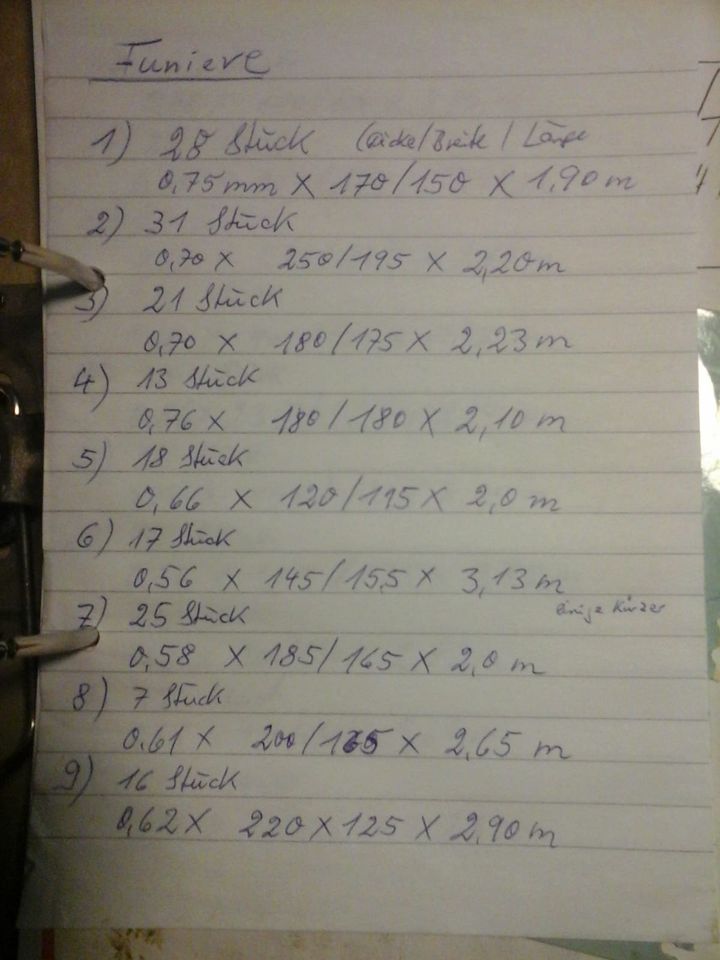 Funiere
1) 28 Stück (Dicke/Breite / Länge
0,75 mm X 170/150 X 1,90 m
2) 31 Stück
0,70 X 250/195 X 2,20 m
3) 21 Stück
0,70 X 180/175 X 2,23 m
4) 13 Stück
0,76 X 180/180 X 2,10 m
5) 18 Stück
0,66 X 120/115 X 2,0 m
6) 17 Stück
0,56 X 145/155 X 3,13 m
einige Kürzer
7) 25 Stück
0,58 X 185/165 X 2,0 m
8) 7 Stück
0.61 X 200/165 X 2,65 m
9) 16 Stück
0,62 X 220 X 125 X 2,90 m